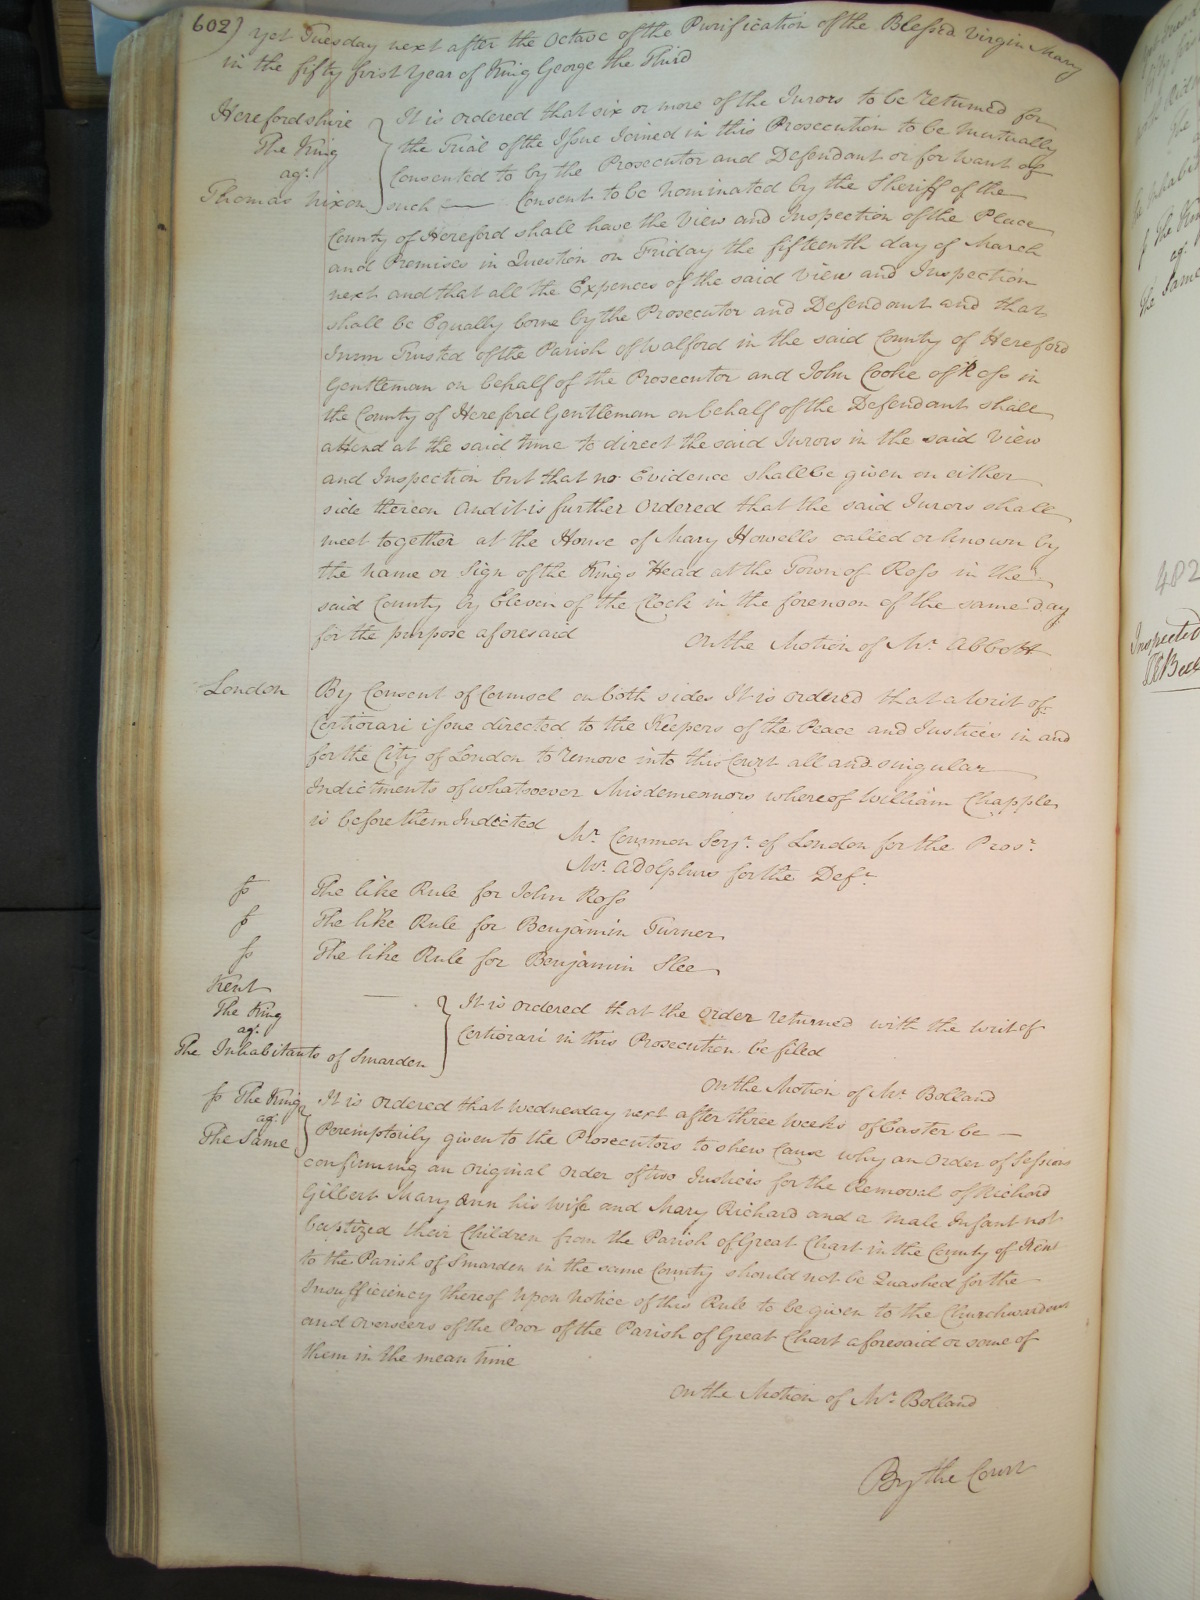 602) Yet Tuesday next after the Octave of the Purification of the Blessed Virgin Mary
in the fifty first Year of King George the Third
Herefordshire
The King
agt.
Thomas Nixon
It is ordered that six or more of the Jurors to be returned for
the Trial of the Issue Joined in this Prosecution to be mutually
Consented to by the Prosecutor and Defendant or for want of
such Consent to be nominated by the Sheriff of the
County of Hereford shall have the View and Inspection of the Place
and Premises in Question on Friday the fifteenth day of March
next and that all the Expences of the said View and Inspection
shall be Equally borne by the Prosecutor and Defendant and that
Trusted of the Parish of Walford in the said County of Hereford
Gentleman on behalf of the Prosecutor and John Cooke of Ross in
the County of Hereford Gentleman on behalf of the Defendant shall
attend at the said time to direct the said Jurors in the said View
and Inspection but that no Evidence shall be given on either
side thereon And it is further Ordered that the said Jurors shall
meet together at the House of Mary Howells called or known by
the name or Sign of the Kings Head at the Town of Ross in the
said County by Eleven of the Clock in the forenoon of the same day
for the purpose aforesaid
On the Motion of Mr. Abbott
London
By Consent of Counsel on both sides It is ordered that a Writ of
Certiorari issue directed to the Keepers of the Peace and Justices in and
for the City of London to remove into this Court all and singular
Indictments of whatsoever Misdemeanors whereof William Chapple
is before them Indicted
Mr. Common Serjt. of London for the Prosr.
Mr. Adolphus for the Deft.
ss The like Rule for John Ross
ss The like Rule for Benjamin Turner
ss The like Rule for Benjamin Slee
Kent
The King
agt.
The Inhabitants of Smarden
It is ordered that the order returned with the Writ of
Certiorari in this Prosecution be filed
On the Motion of Mr. Bolland
ss The King
agt.
The Same
It is ordered that Wednesday next after three Weeks of Easter be
Peremptorily given to the Prosecutors to shew Cause why an Order of Sessions
confirming an Original Order of two Justices for the Removal of Richard
Gilbert Mary Ann his wife and Mary Richard and a Male Infant not
baptized their Children from the Parish of Great Chart in the County of Kent
to the Parish of Smarden in the same County should not be Quashed for the
Insufficiency thereof Upon Notice of this Rule to be given to the Churchwardens
and Overseers of the Poor of the Parish of Great Chart aforesaid or some of
them in the mean time
On the Motion of Mr. Bolland
By the Court
The
agt.
the Same
482
Inspected